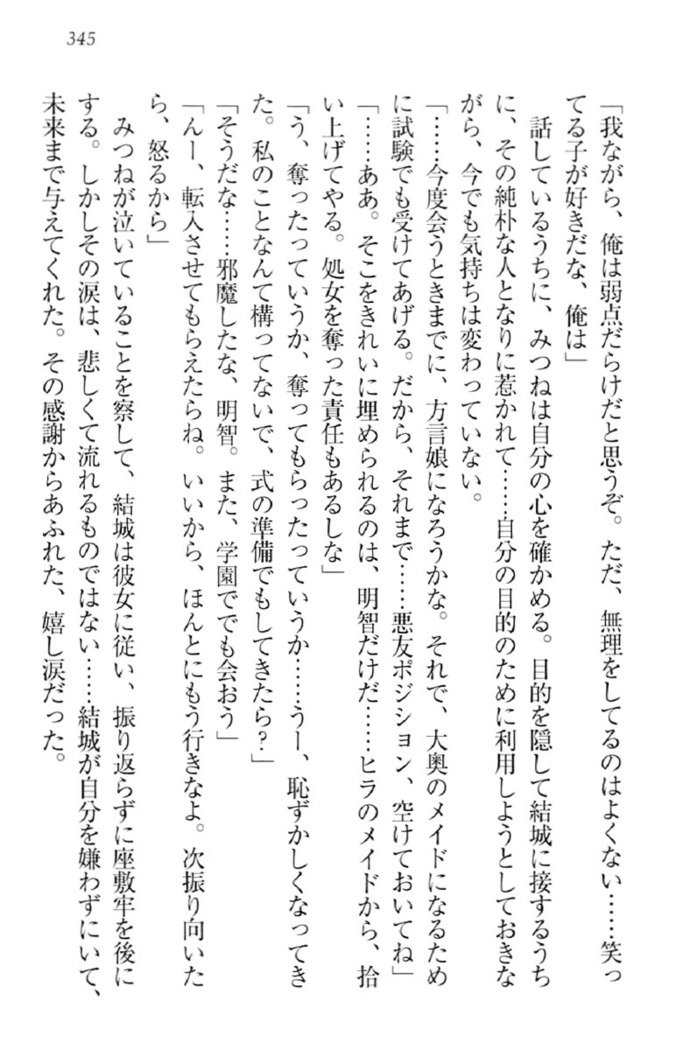 345
「我ながら、俺は弱点だらけだと思うぞ。ただ、無理をしてるのはよくない……笑っ
てる子が好きだな、俺は」
　話しているうちに、みつねは自分の心を確かめる。目的を隠して結城に接するうち
に、その純朴な人となりに惹かれて……自分の目的のために利用しようとしておきな
がら、今でも気持ちは変わっていない。
「……今度会うときまでに、方言娘になろうかな。それで、大奥のメイドになるため
に試験でも受けてあげる。だから、それまで……悪友ポジション、空けておいてね」
「……ああ。そこをきれいに埋められるのは、明智だけだ……ヒラのメイドから、拾
い上げてやる。処女を奪った責任もあるしな」
「う、奪ったっていうか、奪ってもらったっていうか……うー、恥ずかしくなってき
た。私のことなんて構ってないで、式の準備でもしてきたら？」
「そうだな……邪魔したな、明智。また、学園ででも会おう」
「んー、転入させてもらえたらね。いいから、ほんとにもう行きなよ。次振り向いた
ら、怒るから」
　みつねが泣いていることを察して、結城は彼女に従い、振り返らずに座敷牢を後に
する。しかしその涙は、悲しくて流れるものではない……結城が自分を嫌わずにいて、
未来まで与えてくれた。その感謝からあふれた、嬉し涙だった。